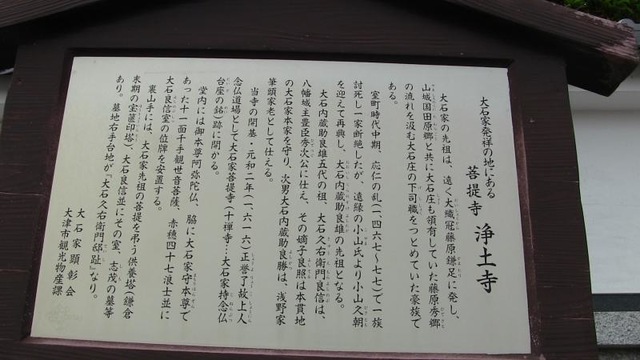 大石家発祥の地にある
菩提寺 浄土寺
大石家の先祖は、遠く大織冠藤原鎌足に発し、
山城国田原郷と共に大石庄も領有していた藤原秀郷
の流れを汲む大石庄の下司職をつとめていた豪族で
ある。
室町時代中期、応仁の乱(一、四六七~七七)で一族
討死し一家断絶したが、遠縁の小山氏より小山久朝
を迎えて再興し、大石内蔵助良雄の先祖となる。
大石内蔵助良雄五代の祖、大石久右衛門良信は、
八幡城主豊臣秀次公に仕え、その嫡子良照は本貫地
の大石家本家を守り、次男大石内蔵助良勝は、浅野家
筆頭家老として仕える。
当寺の開基・元和二年(一、六一六)正誉了故上人
念仏道場として大石家菩提寺(十禅寺…大石家持念仏
台座の銘)跡に開かる。
堂内には御本尊阿弥陀仏、脇に大石家守本尊で
あった十一面千手観世音菩薩、赤穂四十七浪士並に
大石良信室の位牌を安置する。
裏山手には、大石家先祖の菩提を弔う供養塔(鎌倉
末期の宝篋印塔)、大石良信並にその室、志茂の墓等
あり。墓地右手台地が「大石久右衛門邸趾」なり。
大石家顕彰会
大津市観光物産課